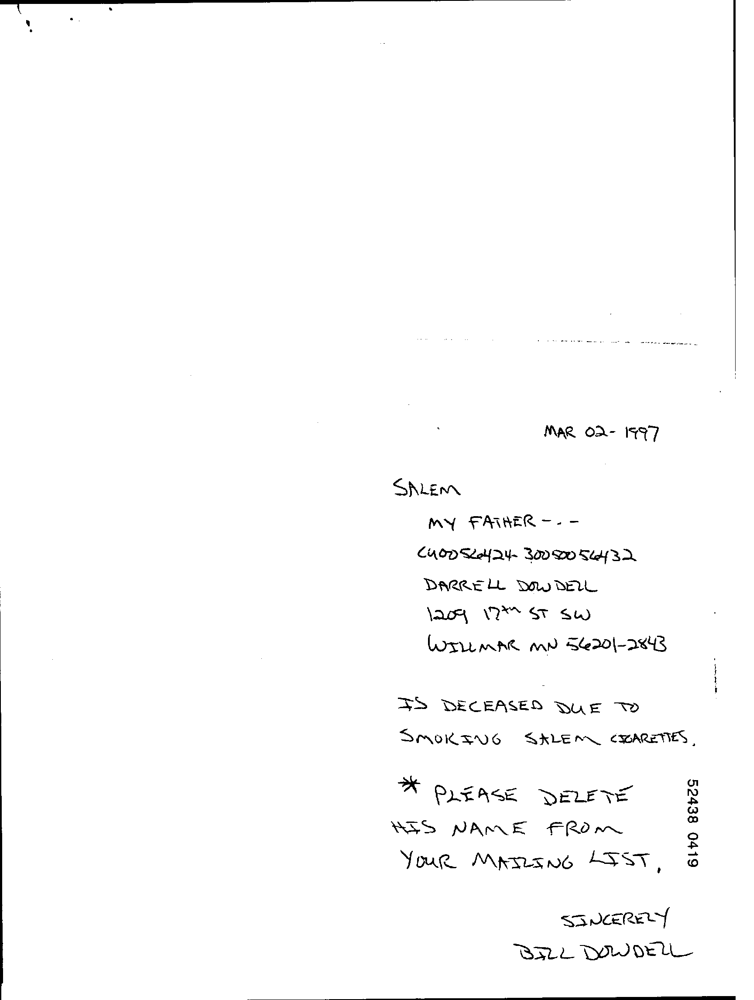 MAR 02-1997
SALEM
MY FATHER -.-
DARRELL DOWDELL
1209 17TH ST SW
WILLMAR MN 56201-2843
IS DECEASED DUE TO
SMOKING SALEM CIGARETTES.
* PLEASE DELETE
HIS NAME FROM
YOUR MAILING LIST.
SINCERELY
BILL DOWDELL
52438 0419